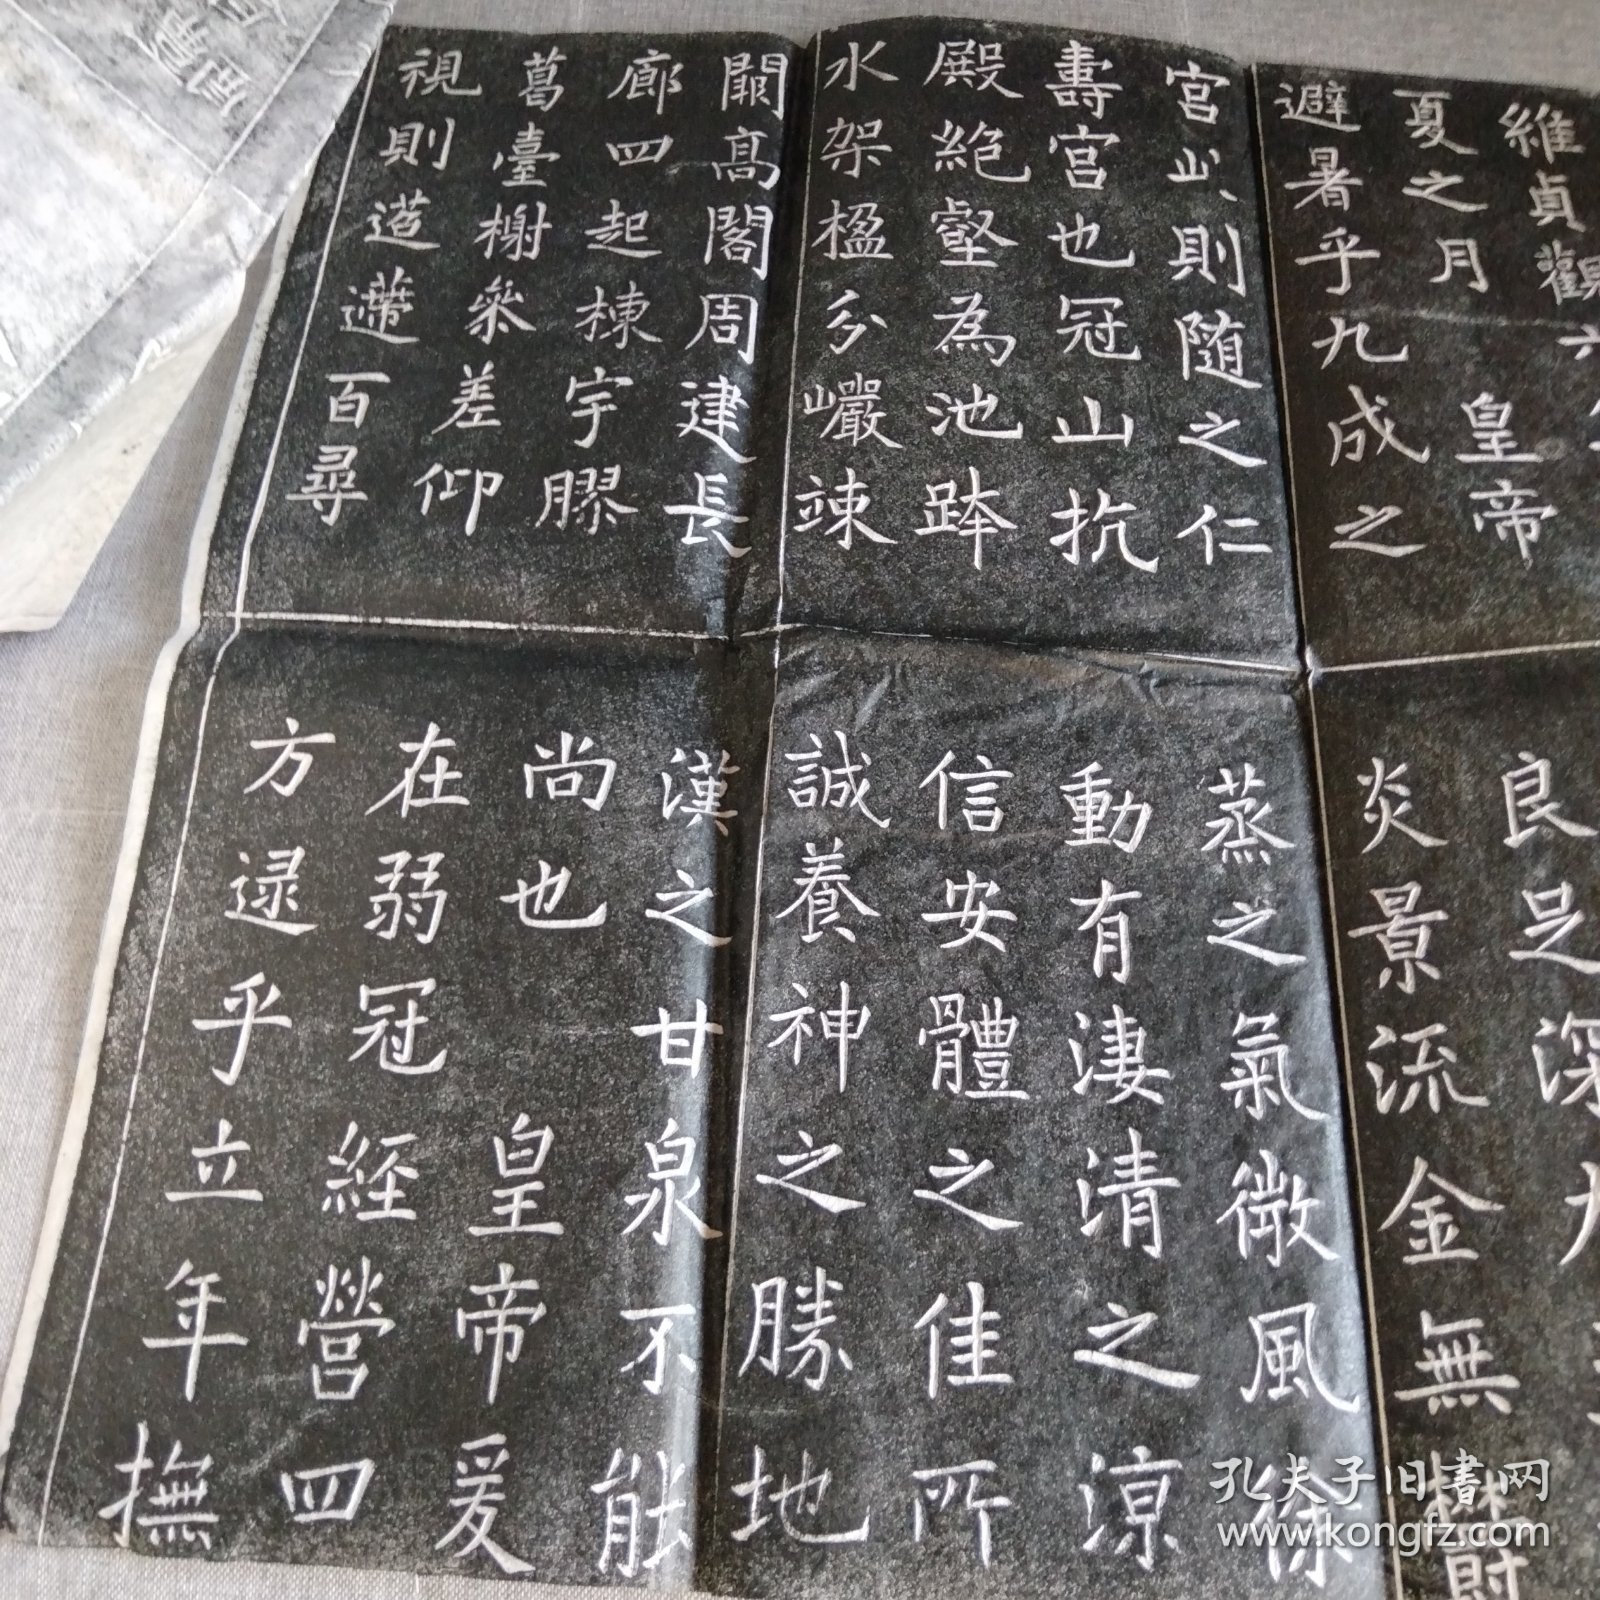 維貞觀六
夏之月 皇帝
避暑乎九成之
宮此則随之仁
壽宮也冠山抗
殿絶壑為池跨
水架楹分巖竦
闕高閣周建長
廊四起棟宇膠
葛臺榭叅差仰
視則迢遰百尋
良足深
炎景流金無鬱
蒸之氣微風徐
動有淒清之涼
信安體之佳所
誠養神之勝地
漢之甘泉不能
尚也 皇帝爰
在弱冠經營四
方逮乎立年撫
孔夫子旧書网
www.kongfz.com